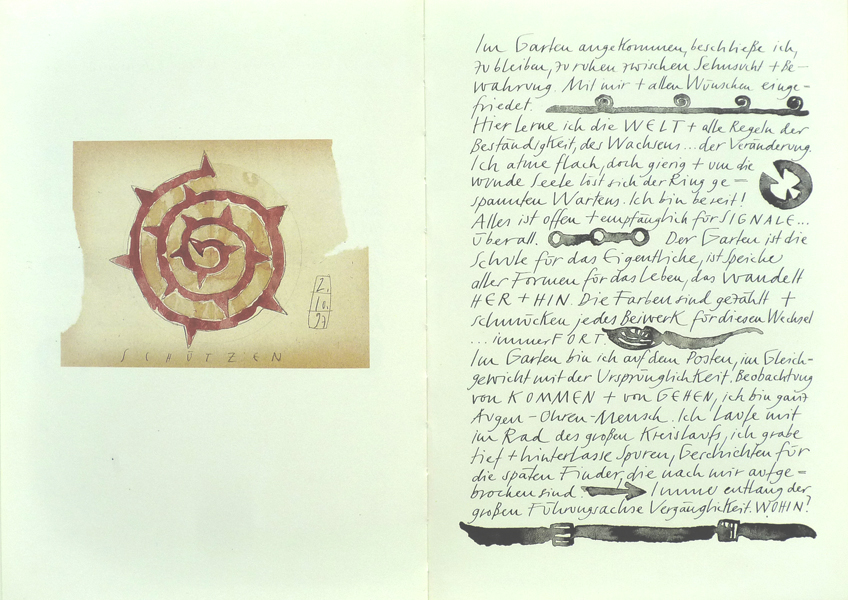 2.
10.
97
SCHÜTZEN
Im Garten angekommen, beschließe ich,
zu bleiben, zu ruhen zwischen Sehnsucht + Be-
wahrung. Mit mir + allen Wünschen einge-
friedet.
Hier lerne ich die WELT + alle Regeln der
Beständigkeit, des Wachsens... der Veränderung.
Ich atme flach, doch gierig + um die
wunde Seele löst sich der Ring ge-
spannten Wartens. Ich bin bereit!
Alles ist offen + empfänglich für SIGNALE...
überall. Der Garten ist die
Schule für das Eigentliche, ist Speiche
aller Formen für das Leben, das wandelt
HER + HIN. Die Farben sind gezählt +
schmücken jedes Beiwerk für diesen Wechsel
... immer FORT.
Im Garten bin ich auf dem Posten, im Gleich-
gewicht mit der Ursprünglichkeit. Beobachtung
von KOMMEN + von GEHEN, ich bin ganz
Augen-Ohren-Mensch. Ich laufe mit
im Rad des großen Kreislaufs, ich grabe
tief + hinterlasse Spuren, Geschichten für
die späten Finder, die nach mir aufge-
brochen sind. Immer entlang der
großen Führungsachse Vergänglichkeit. WOHIN?